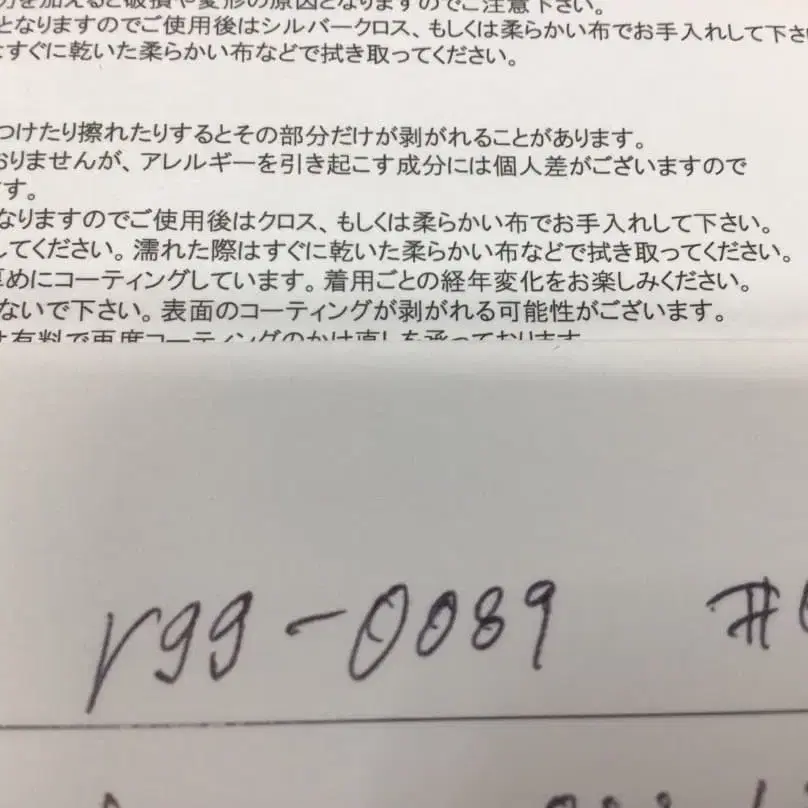 力を加えると破損や変形の原因となりますのでご注意下さい。
となりますのでご使用後はシルバークロス、もしくは柔らかい布でお手入れして下さ
はすぐに乾いた柔らかい布などで拭き取ってください。
つけたり擦れたりするとその部分だけが剥がれることがあります。
おりませんが、アレルギーを引き起こす成分には個人差がございますので
ます。
なりますのでご使用後はクロス、もしくは柔らかい布でお手入れして下さい。
してください。濡れた際はすぐに乾いた柔らかい布などで拭き取ってください。
厚めにコーティングしています。着用ごとの経年変化をお楽しみください。
ないで下さい。表面のコーティングが剥がれる可能性がございます。
は有料で再度コーティングのかけ直しを承っております
r99-0089 #